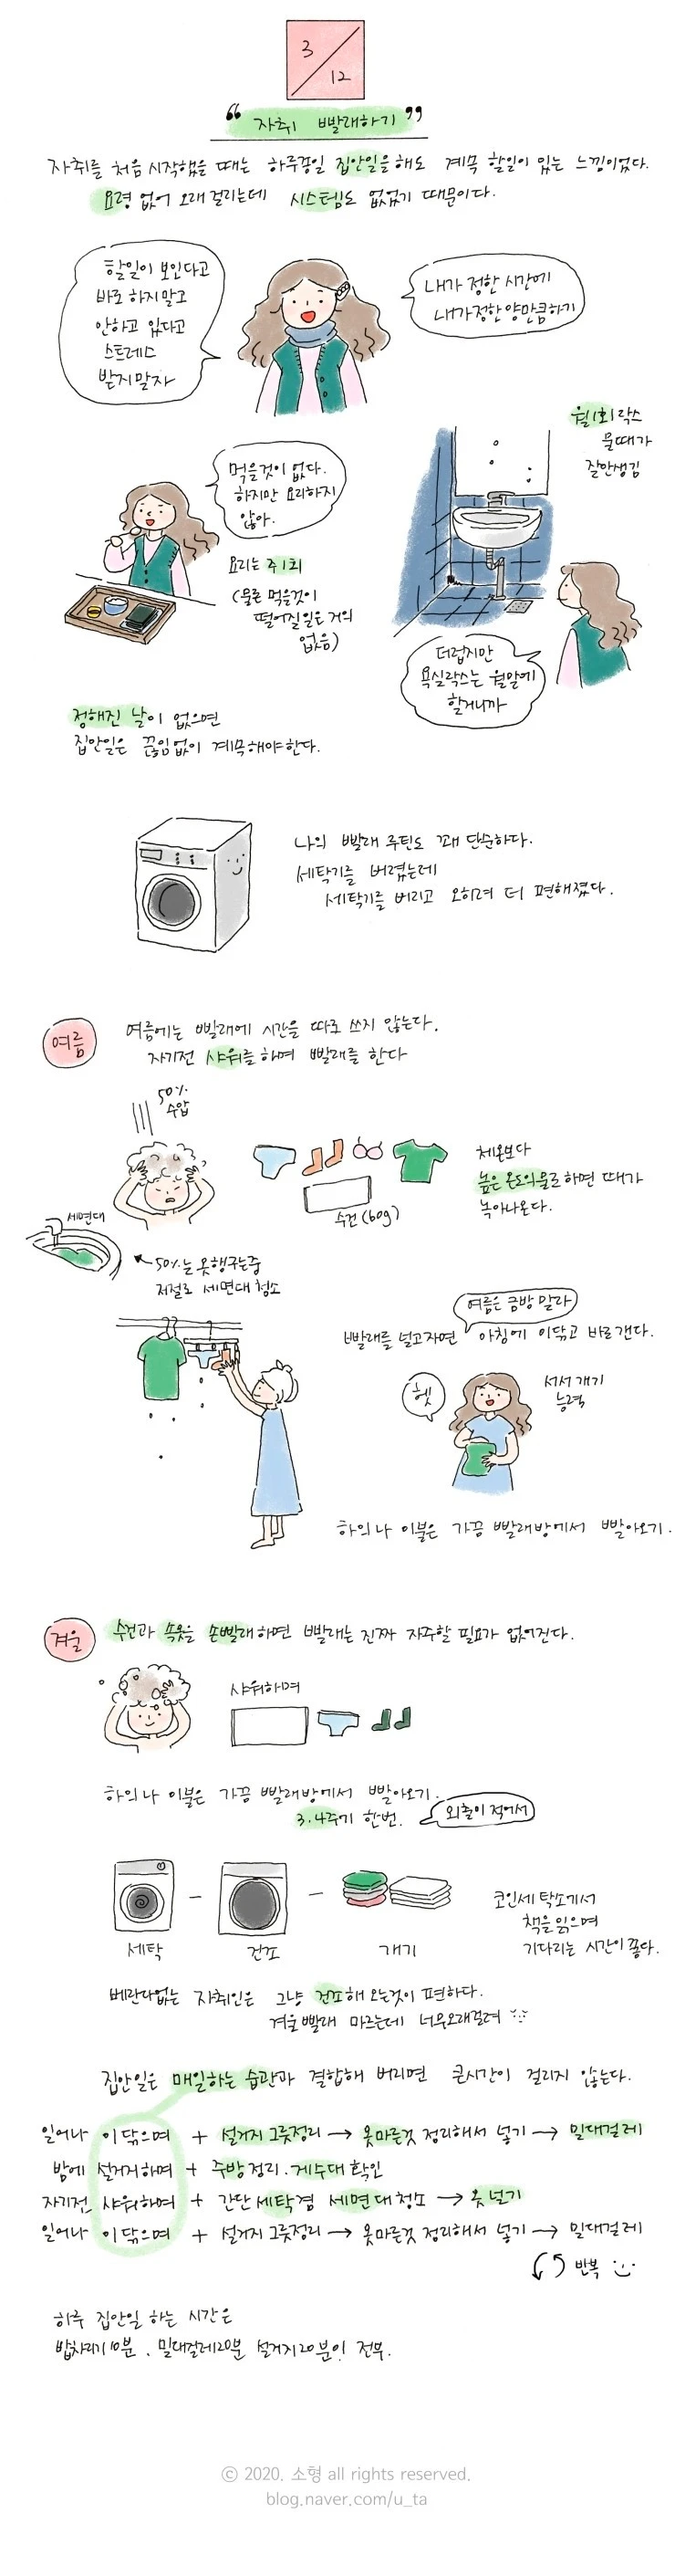 3
12
“ 자취 빨래하기 ”
자취를 처음 시작했을 때는 하루종일 집안일을해도 계속 할일이 있는 느낌이었다.
요령 없어 오래 걸리는데 시스템도 없었기 때문이다.
할일이 보인다고
바로 하지말고
안하고 있다고
스트레스
받지말자
내가 정한 시간에
내가정한 양만큼하기
월1회 락스
물때가
잘안생김
먹을것이 없다.
하지만 요리하지
않아.
요리는 주1회
(물론 먹을것이
떨어질일은 거의
없음)
더럽지만
욕실락스는 월말에
할거니까
정해진 날이 없으면
집안일은 끊임없이 계속해야한다.
나의 빨래 루틴도 꽤 단순하다.
세탁기를 버렸는데
세탁기를 버리고 오히려 더 편해졌다.
여름
여름에는 빨래에 시간을 따로 쓰지 않는다.
자기전 샤워를 하며 빨래를 한다
50%
수압
수건(60g)
체온보다
높은 온도의물로하면 때가
녹아나온다.
세면대
50%는 옷헹구는중
저절로 세면대 청소
여름은 금방 말라
빨래를 널고자면 아침에 이닦고 바로갠다.
헷
서서 개기
능력
하의나 이불은 가끔 빨래방에서 빨아오기.
겨울
수건과 속옷을 손빨래하면 빨래는 진짜 자주할 필요가 없어진다.
샤워하며
하의나 이불은 가끔 빨래방에서 빨아오기.
3.4주에 한번.
외출이 적어서
세탁
건조
개기
코인세탁소에서
책을 읽으며
기다리는 시간이좋다.
베란다없는 자취인은 그냥 건조해 오는것이 편하다.
겨울빨래 마르는데 너무오래걸려
집안일은 매일하는 습관과 결합해 버리면 큰시간이 걸리지 않는다.
일어나 이닦으며 + 설거지 그릇정리 → 옷마른것 정리해서 넣기 → 밀대걸레
밤에 설거지하며 + 주방정리. 제수대 확인
자기전 샤워하며 + 간단 세탁겸 세면대청소 → 옷널기
일어나 이닦으며 + 설거지 그릇정리 → 옷마른것 정리해서 넣기 → 밀대걸레
반복
하루 집안일 하는 시간은
밥차리기10분. 밀대걸레20분 설거지20분이 전부.
© 2020. 소형 all rights reserved.
blog.naver.com/u_ta